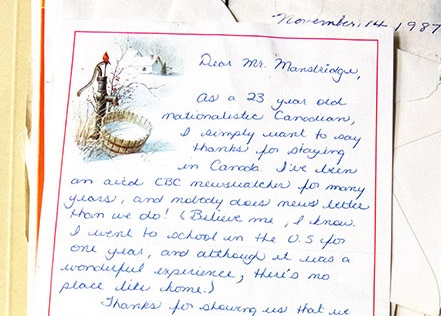 November 14 1987
Dear Mr. Mansbridge,
As a 23 year old
nationalistic Canadian,
I simply want to say
thanks for staying
in Canada. I've been
an avid CBC newswatcher for many
years, and nobody does news better
than we do! (Believe me, I know.
I went to school in the U.S for
one year, and although it was a
wonderful experience, there's no
place like home.)
Thanks for showing us that we